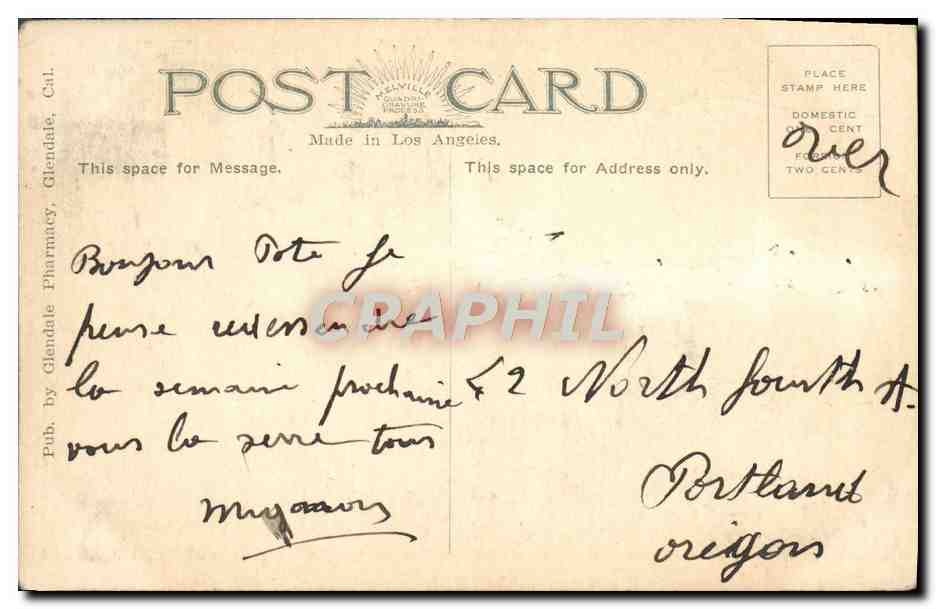 POST CARD
MELVILLE
QUADRI
GRAVURE
PROCESS
Made in Los Angeles.
This space for Message.
This space for Address only.
PLACE
STAMP HERE
DOMESTIC
ONE CENT
FOREIGN
TWO CENTS
Pub. by Glendale Pharmacy, Glendale, Cal.
Bonjour Pote je
pense redessendre
la semaine prochaine
vous la serre tous
Mignon
42 North fourth
Portland
origon
CPARPHIL